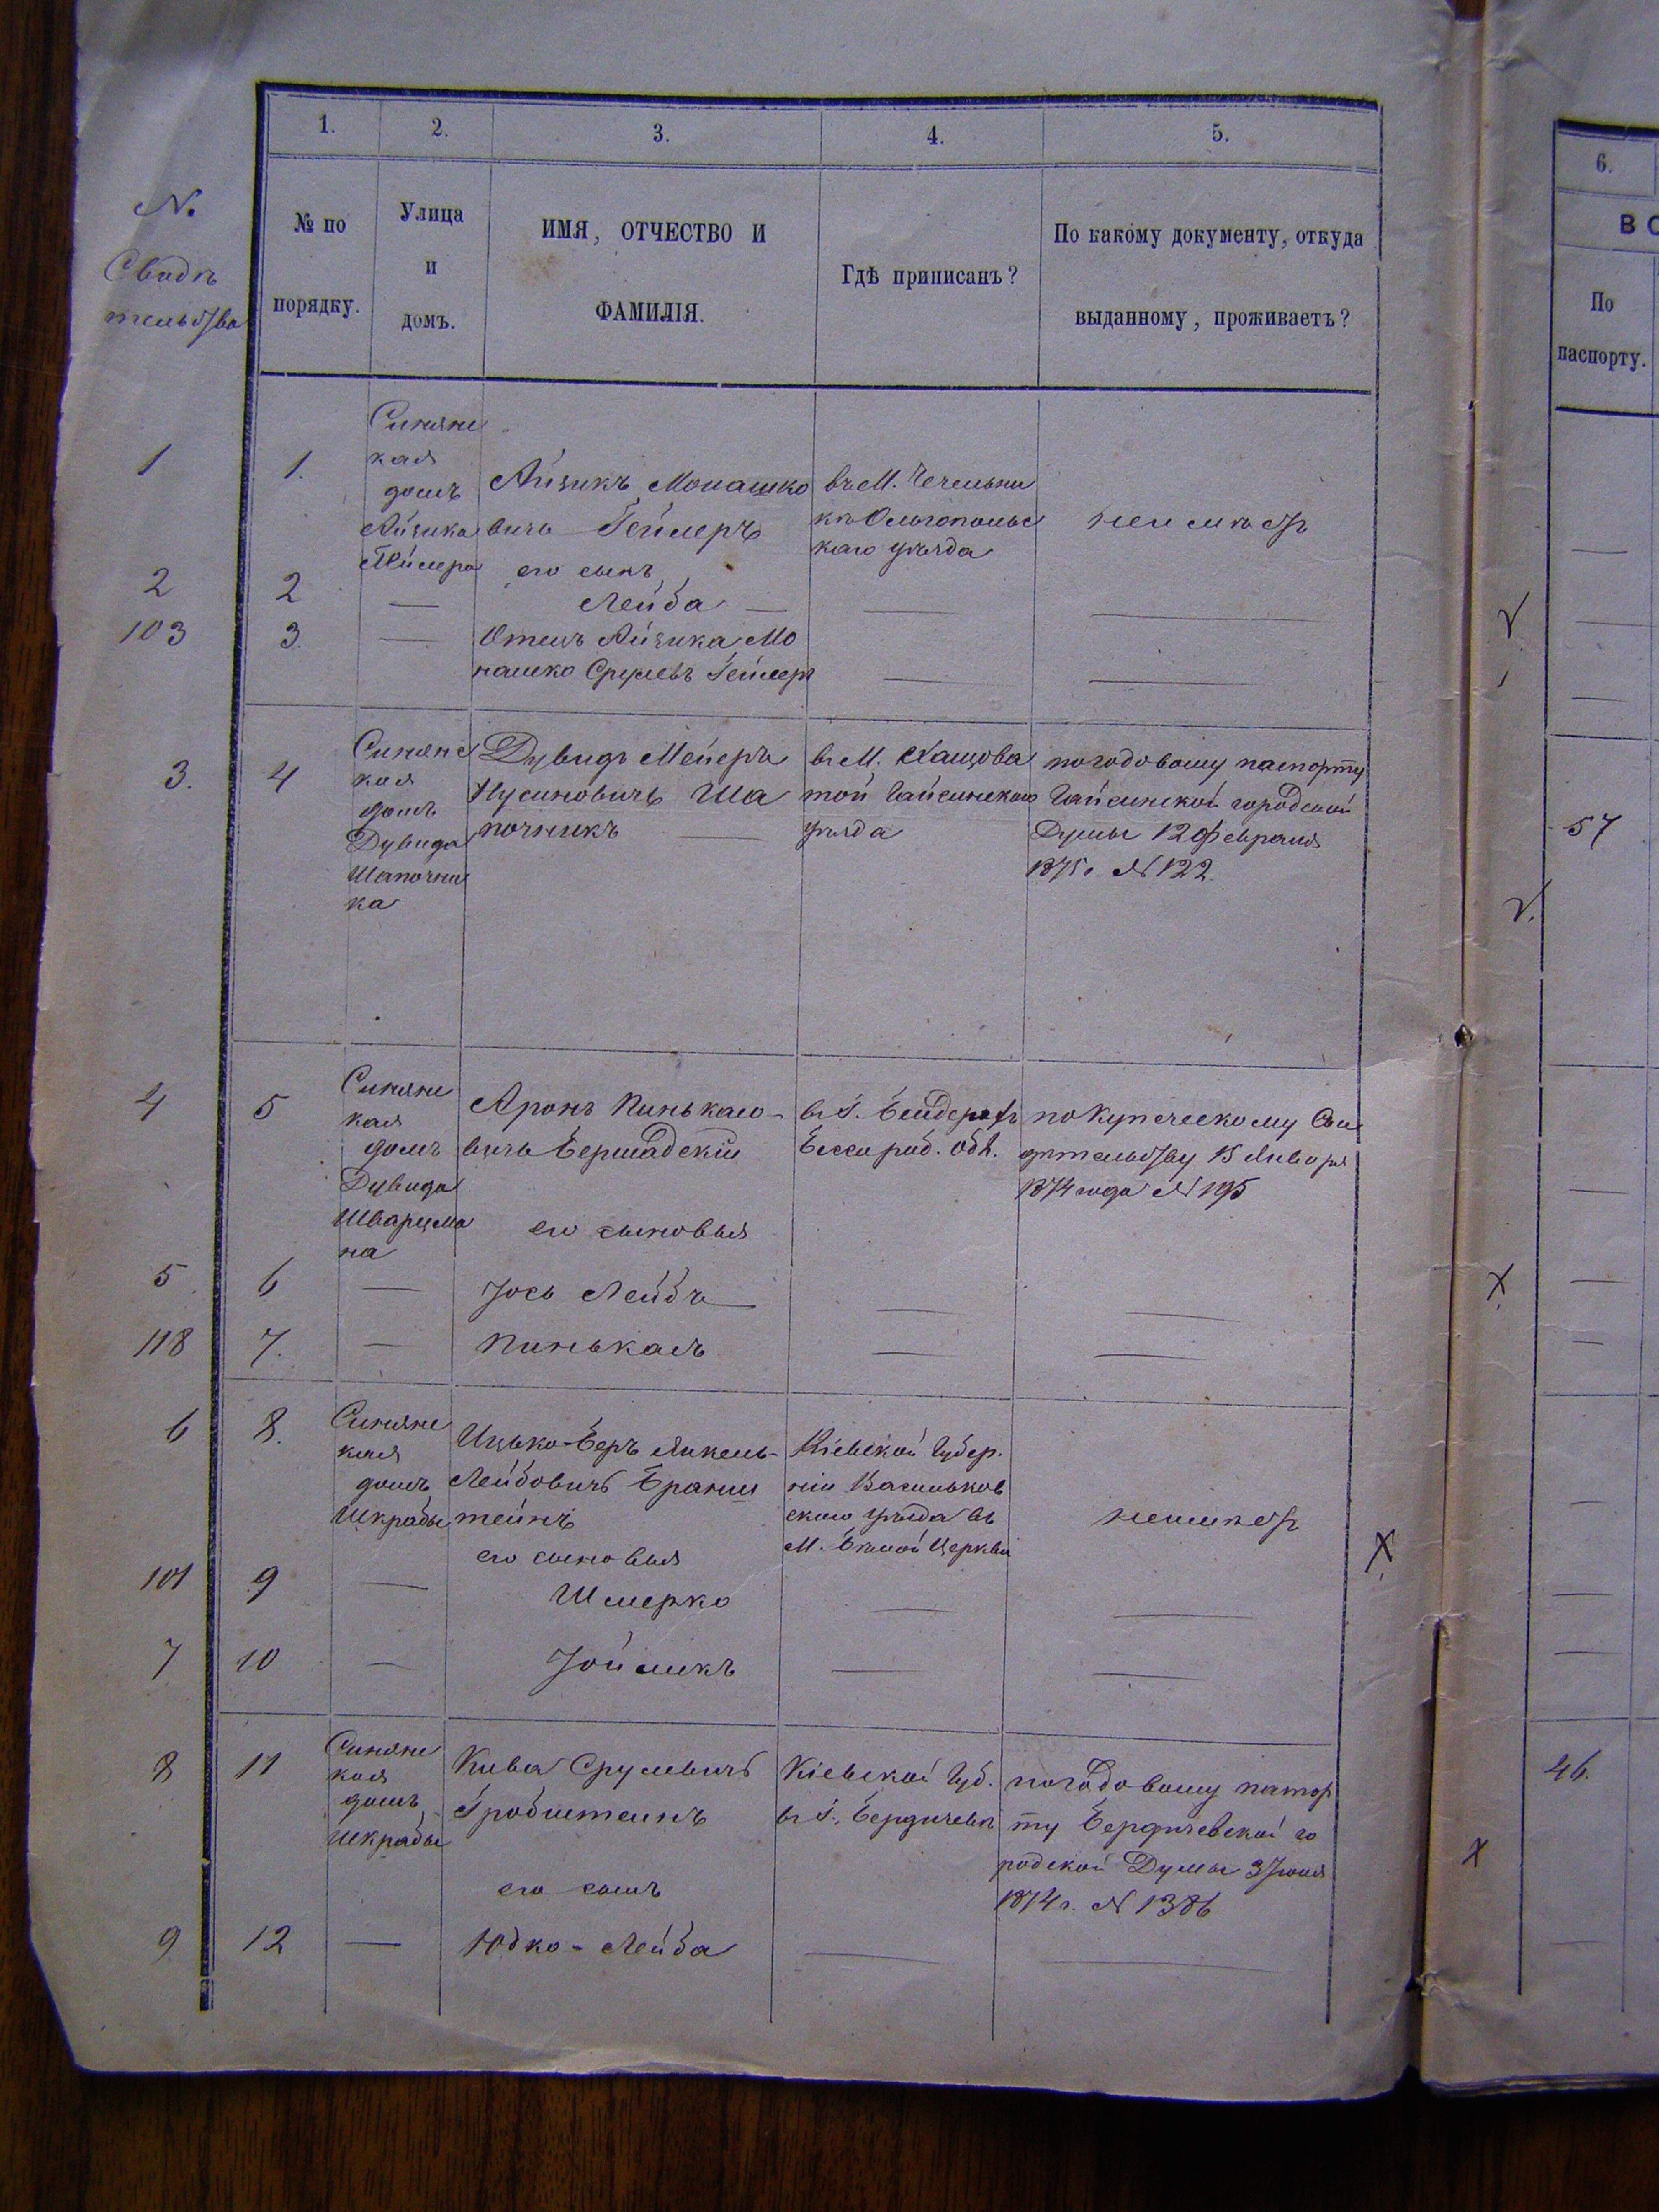 1. 2. 3. 4. 5.
№
Свидѣ
тельства
№ по
порядку.
Улица
и
домъ.
ИМЯ, ОТЧЕСТВО И
ФАМИЛІЯ.
Гдѣ приписанъ?
По какому документу, откуда
выданному, проживаетъ?
6.
По
паспорту.
1 1.
Синянс
кая
домъ
Айзика
Гейлера
Айзикъ Монашко
вичь Гейлеръ
въ М. Чечельни
кѣ Ольгопольс
каго уѣзда
неимѣетъ
его сынъ
2 2 — Лейба — — —
103 3. — Отецъ Айзика Мо
нашко Срулевъ Гейлеръ — —
3. 4
Синянс
кая
домъ
Дувида
Шапочни
ка
Дувидъ Мейеръ
Нусиновичъ Ша
почникъ —
въ М. Хащова
той Гайсинскаго
уѣзда
погодовому паспорту
Гайсинской городской
Думы 12 Февраля
1875 г. № 122
57
4 5
Синянс
кая
домъ
Дувида
Шварцма
на
Аронъ Пинькасо-
вичь Бершадскій
въ Г. Бендерахъ
Бессараб. Обл.
покупеческому Сви
дѣтельству 15 Января
1874 года № 195
его сыновья
5 6 — Іось Лейбъ — — —
118 7. — Пинькасъ — —
6 8.
Синянс
кая
домъ
Шкрабы
Ицько-Беръ Янкель-
Лейбовичъ Бранш
тейнъ
Кіевской Губер.
ніи Васильков
скаго уѣзда въ
М. Бѣлой Церкви
неимѣетъ
его сыновья
101 9 — Шмерко — —
7 10 — Іойликъ — —
8 11
Синянс
кая
домъ
Шкрабы
Кива Срулевичъ
Гробштейнъ
Кіевской Губ.
въ Г. Бердичевѣ
погодовому паспор
ту Бердичевской го
родской Думы 3 Іюля
1874 г. № 1386
46.
его сынъ
9 12 — Юдко-Лейба — —